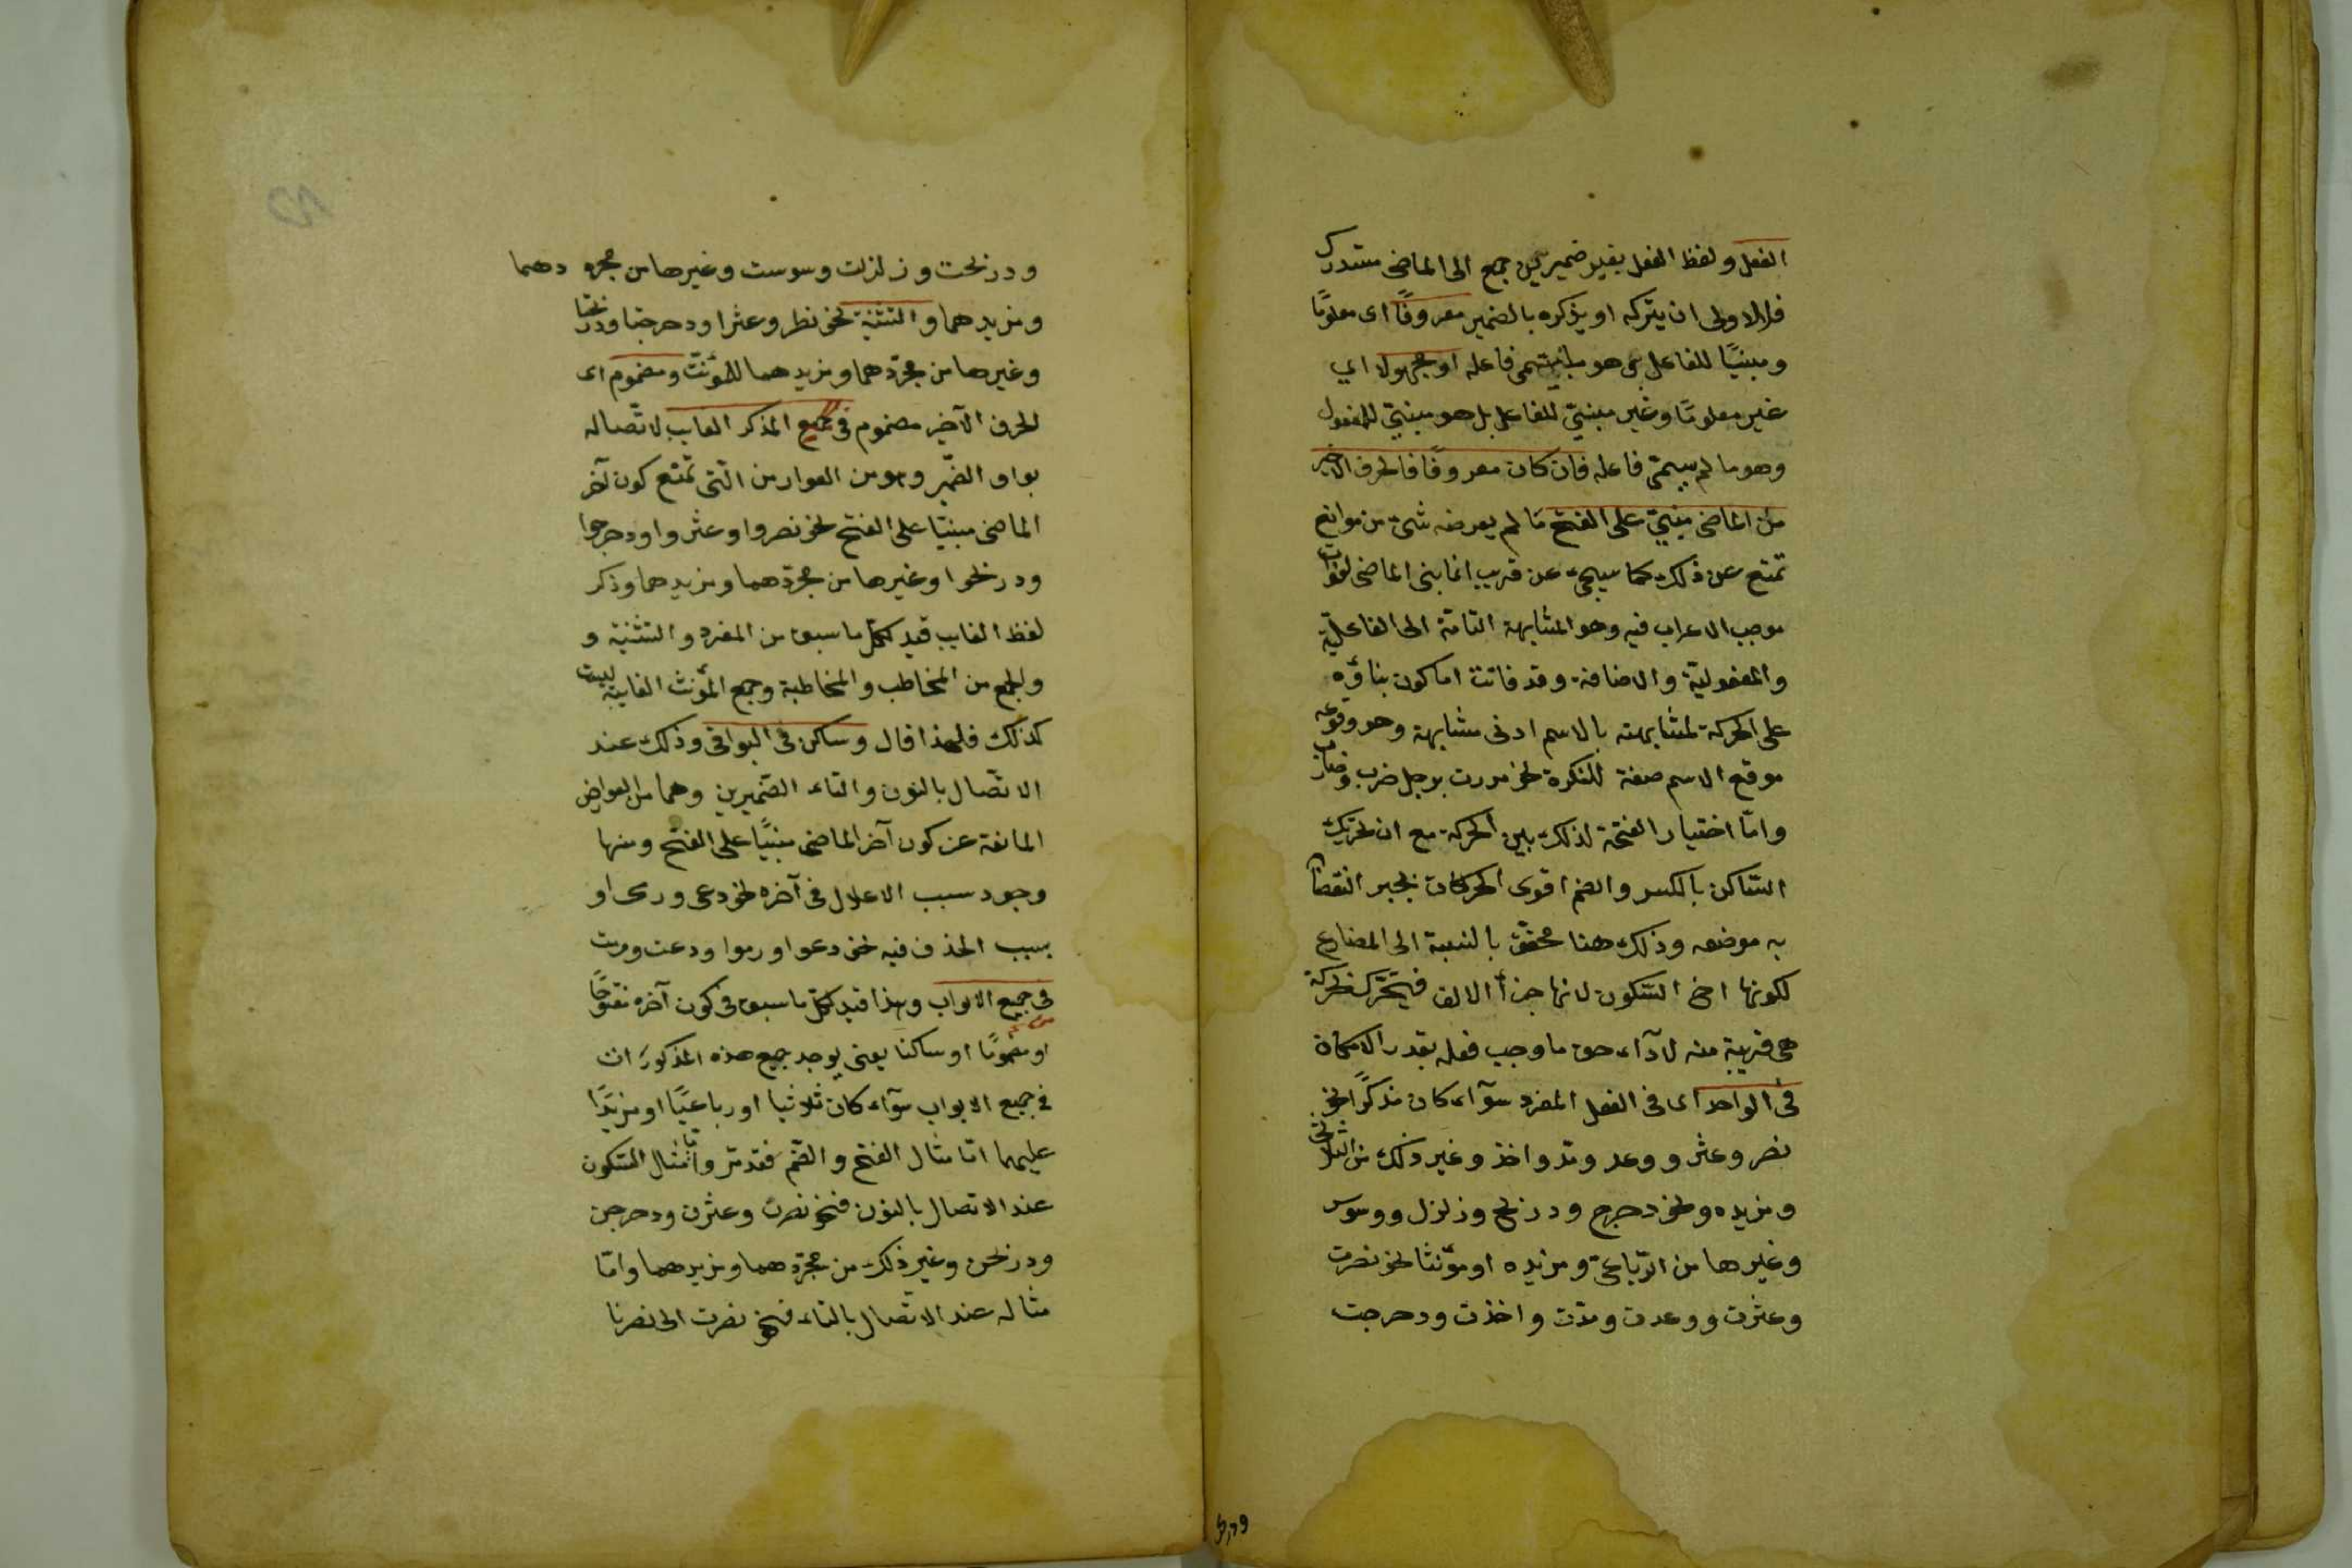 الفعل ولفظ الفعل بغير ضميرين جمع الى الماضى مستدرك
فالاولى ان يتركه او يذكره بالضمير معروفًا اى معلومًا
ومبنيًا للفاعل فاعله او مجهولا اي
غير معلومًا وغير مبنىّ للفاعل بل هو مبنىّ للمفعول
وهو ما لم يسمّ فاعله فان كان معروفًا فالحرف الاخير
من الماضى مبنىّ على الفتح ما لم يعرضه شىء من موانع
تمنع عن ذلك كما سيجىء عن قريب انما بنى الماضى لفوات
موجب الاعراب فيه وهو المشابهة التامة الى الفاعليّة
والمفعولية والاضافة وقد فاتتة اما كون بناؤه
على الحركة لمشابهته بالاسم ادنى مشابهة وهو وقوعه
موقع الاسم صفة للنكرة نحو مررت برجل ضرب وضارب
وامّا اختيار الفتحة لذلك بين الحركة مع ان تحريك
السّاكن بالكسر والضم اقوى الحركات نجبر النقصان
به موضعه وذلك هنا محقّق بالنسبة الى المضارع
لكونها اخ السّكون لانها جزأ الالف فيتحرّك بحركة
هى قريبة منه لاداء حق ما وجب فعله بقدر الامكان
فى الواحد اى فى الفعل المفرد سوآء كان مذكرًا نحو
نصر وعثر ووعد ومدّ واخذ وغير ذلك من الثلاثى
ومزيده ونحو دحرج ودرنح وزلزل ووسوس
وغيرها من الرّباعىّ ومزيده او مؤنثا نحو نصرت
وعثرت ووعدت ومدّت واخذت ودحرجت
ودرنحت
ودرنحت وزلزلت وسوست وغيرها من مجردهما
ومزيدهما والتثنية نحو نصرا وعثرا ودحرجتا ودرنحتا
وغيرها من مجرّدهما ومزيدهما للمؤنث ومضموم اى
الحرف الآخير مضموم فى جمع المذكر الغايب لاتّصاله
بواو الضّمير وهو من العوارض الّتى تمنع كون آخر
الماضى مبنيّا على الفتح نحو نصروا وعثروا ودحرجوا
ودرنحوا وغيرها من مجرّدهما ومزيدهما وذكر
لفظ الغايب قيد لكلّ ما سبق من المفرد والتثنية و
والجمع من المخاطب والمخاطبة وجمع المؤنث الغايبة ليست
كذلك فلهذا قال وساكن فى البواقى وذلك عند
الاتّصال بالنون والتاء الضّميرين وهما من العوارض
المانعة عن كون آخر الماضى مبنيًّا على الفتح ومنها
وجود سبب الاعلال فى آخره نحو دعى ورمى او
بسبب الحذف فيه نحو دعوا ورموا ودعت ورمت
فى جميع الابواب وهذا قيد لكلّ ما سبق فى كون آخره مفتوحًا
او مضمومًا او ساكنا يعنى يوجد جميع هذه المذكورات
فى جميع الابواب سوآء كان ثلاثيا او رباعيًّا او مزيدًا
عليهما امّا مثال الفتح والضّم فقد مرّ وامّا مثال السّكون
عند الاتصال بالنون فنحو نصرن وعثرن ودحرجن
ودرنحن وغير ذلك من مجرّدهما ومزيدهما وامّا
مثاله عند الاتّصال بالتاء فنحو نصرت الى نصرنا